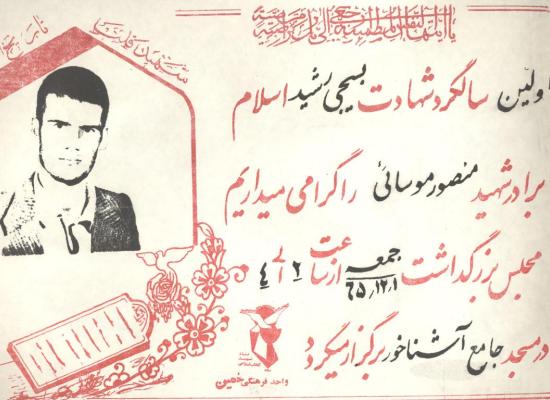 یا ایتها النفس المطمئنة ارجعی الی ربک راضیة مرضیة
اولین سالگرد شهادت بسیجی رشید اسلام
برادر شهید منصور موسائی را گرامی میداریم
مجلس بزرگداشت جمعه ۶۵/۱۲/۱ از ساعت ۲ الی ۴
در مسجد جامع آشناخور برگزار میگردد
شهیدان
بنیاد
شهید
واحد فرهنگی خمین